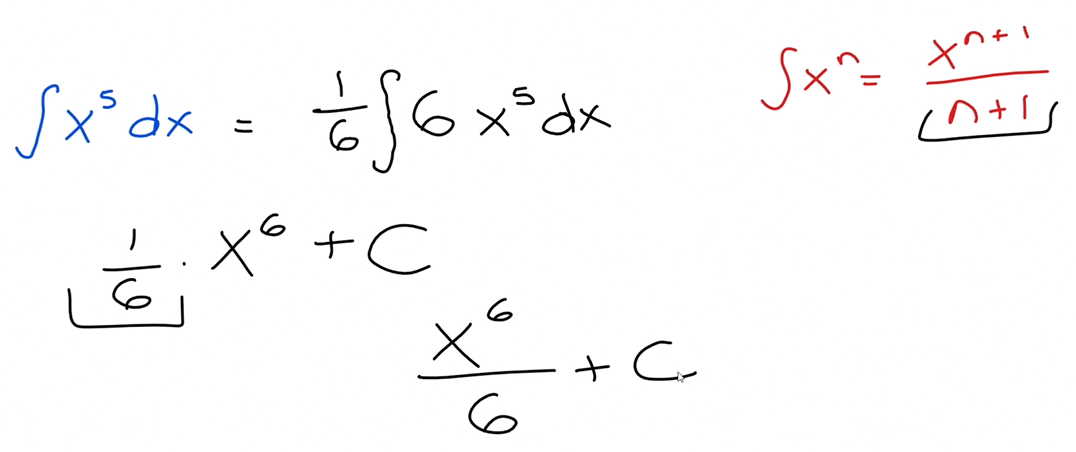 ∫x⁵ dx = 1/6 ∫ 6 x⁵ dx
∫xⁿ = xⁿ⁺¹/n+1
1/6 · x⁶ + C
x⁶/6 + C